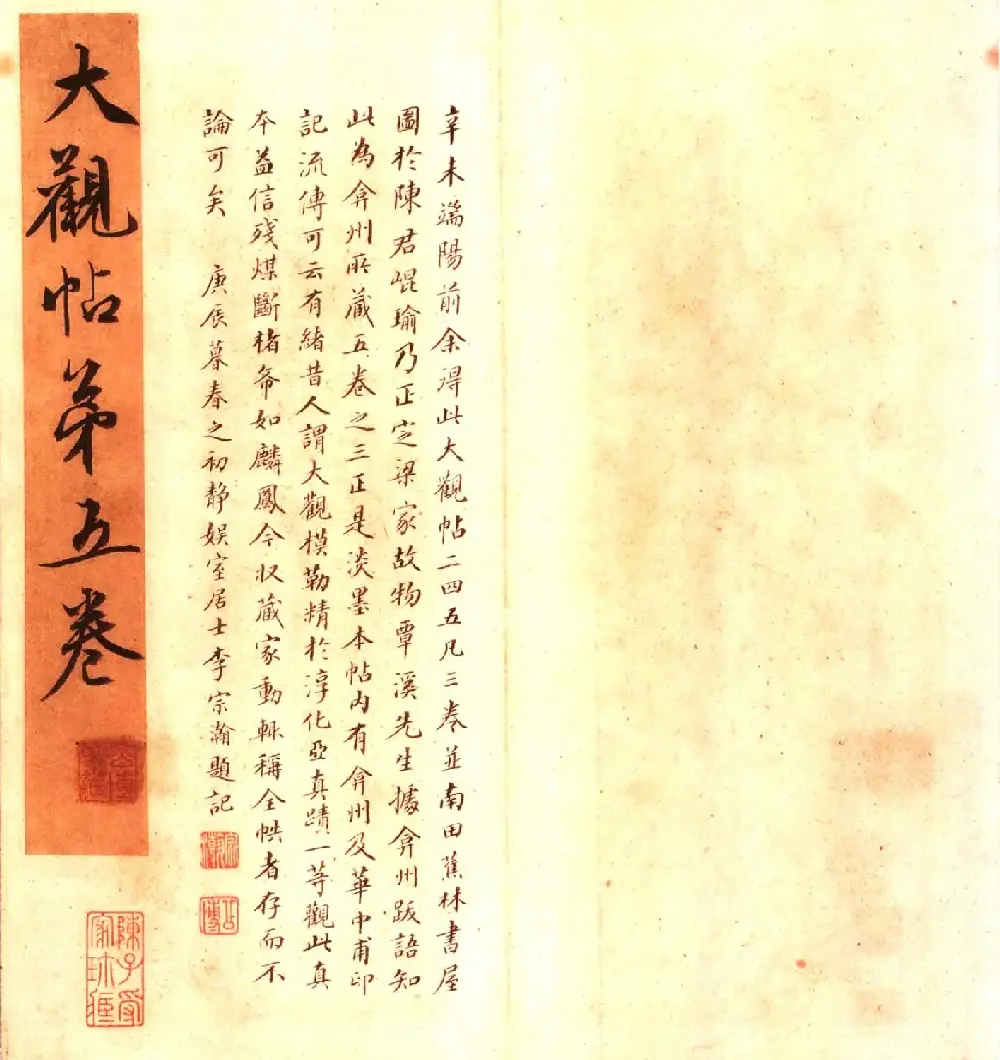 辛未端陽前余淂此大觀帖二四五凡三卷並南田蕉林書屋
圖於陳君崐瑜乃正定梁家故物覃溪先生據弇州跋語知
此為弇州所藏五卷之三正是淡墨本帖内有弇州及華中甫印
記流傳可云有緒昔人謂大觀模勒精於淳化亞真蹟一等觀此真
本益信殘煤斷楮等如麟鳳今收藏家動輒稱全帙者存而不
論可矣 庚辰暮春之初静娱室居士李宗瀚題記
宗瀚
公博
大觀帖第五卷
陳子受家珎藏